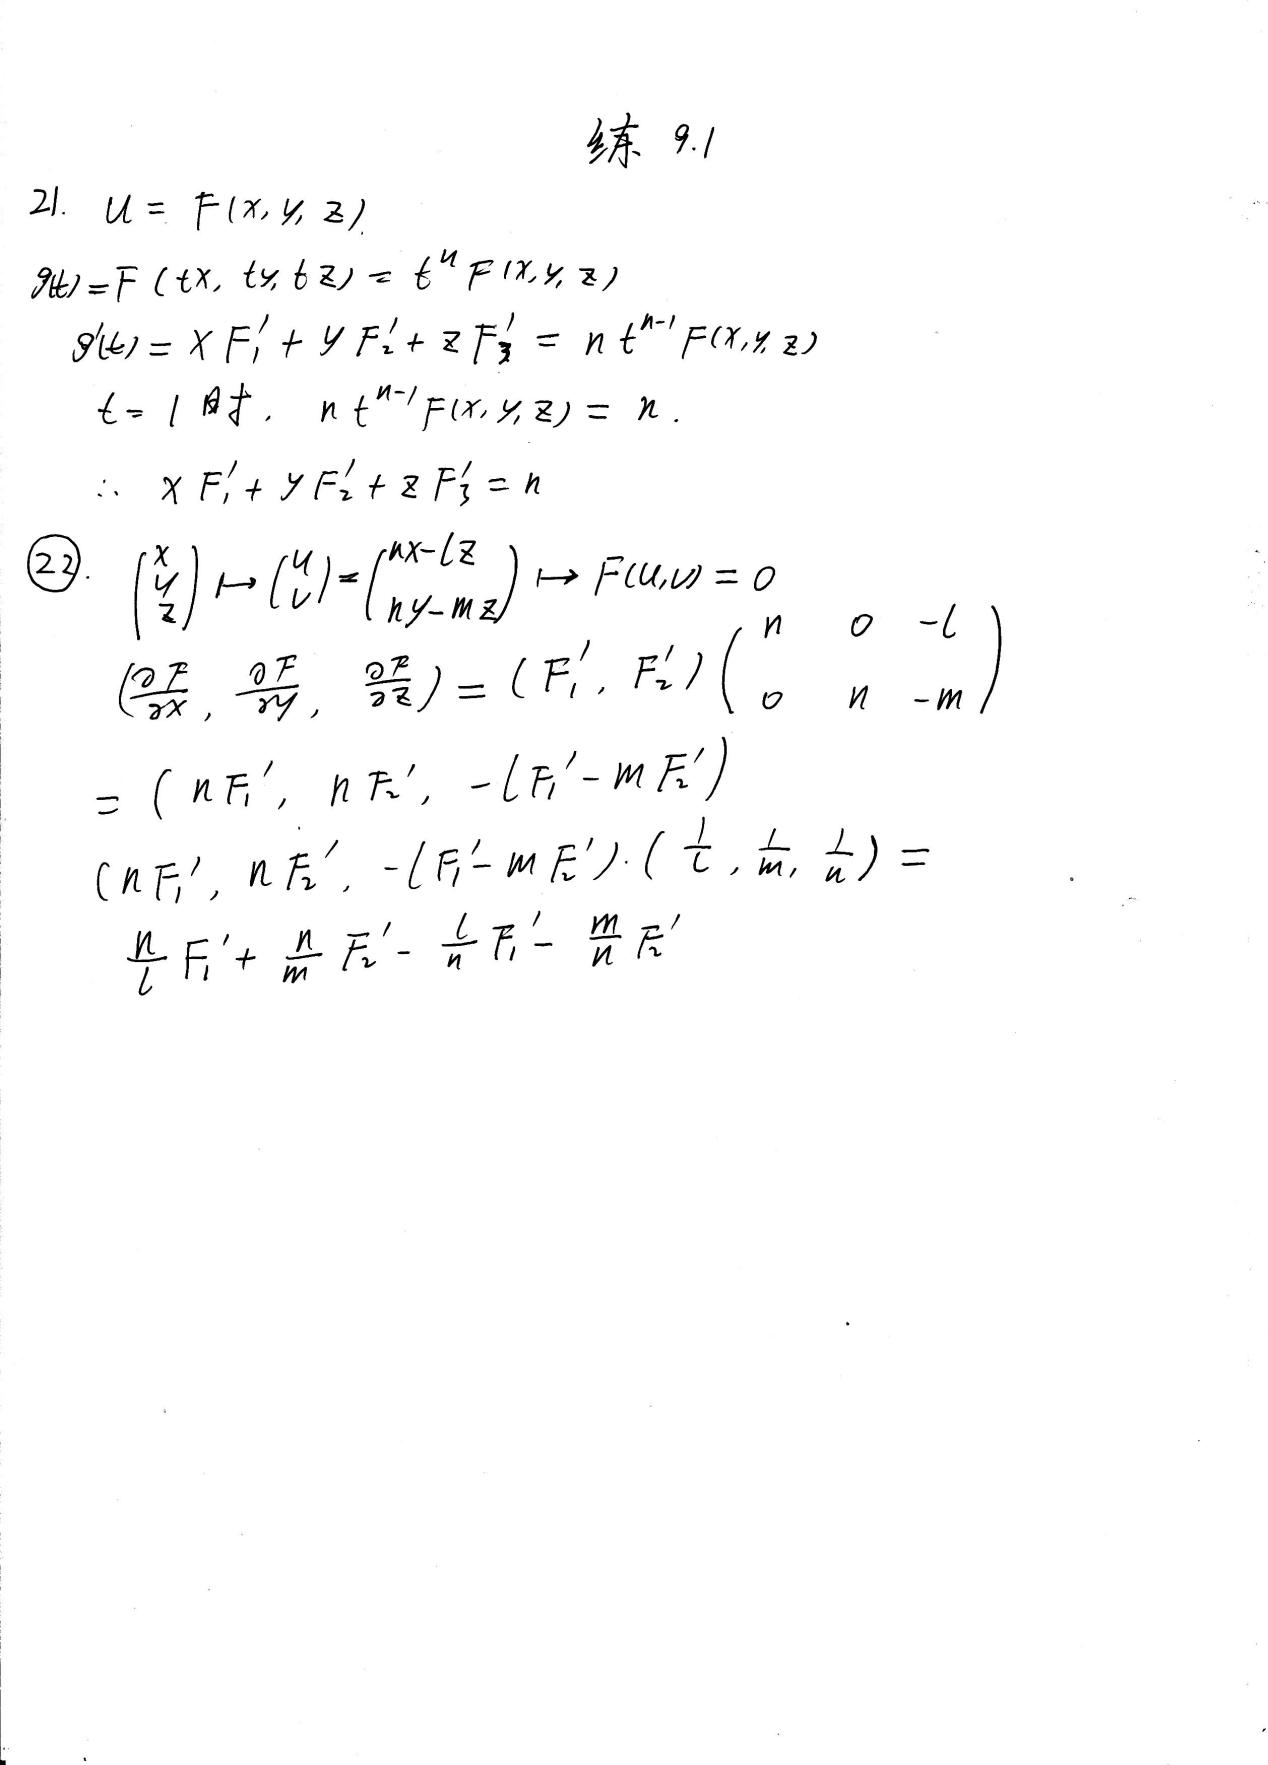 练 9.1
21. u = F(x, y, z)
g(t) = F(tx, ty, tz) = tⁿ F(x, y, z)
g'(t) = x F₁' + y F₂' + z F₃' = n tⁿ⁻¹ F(x, y, z)
t = 1 时. n tⁿ⁻¹ F(x, y, z) = n.
∴ x F₁' + y F₂' + z F₃' = n
㉒. (x y z) ↦ (u v) = (nx-lz ny-mz) ↦ F(u,v) = 0
(∂F/∂x, ∂F/∂y, ∂F/∂z) = (F₁', F₂') (n 0 -l 0 n -m)
= (n F₁', n F₂', -l F₁' - m F₂')
(n F₁', n F₂', -l F₁' - m F₂')·(1/l, 1/m, 1/n) =
n/l F₁' + n/m F₂' - l/n F₁' - m/n F₂'